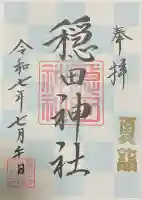 奉拝
穏田神社
令和七年七月午日
夏詣